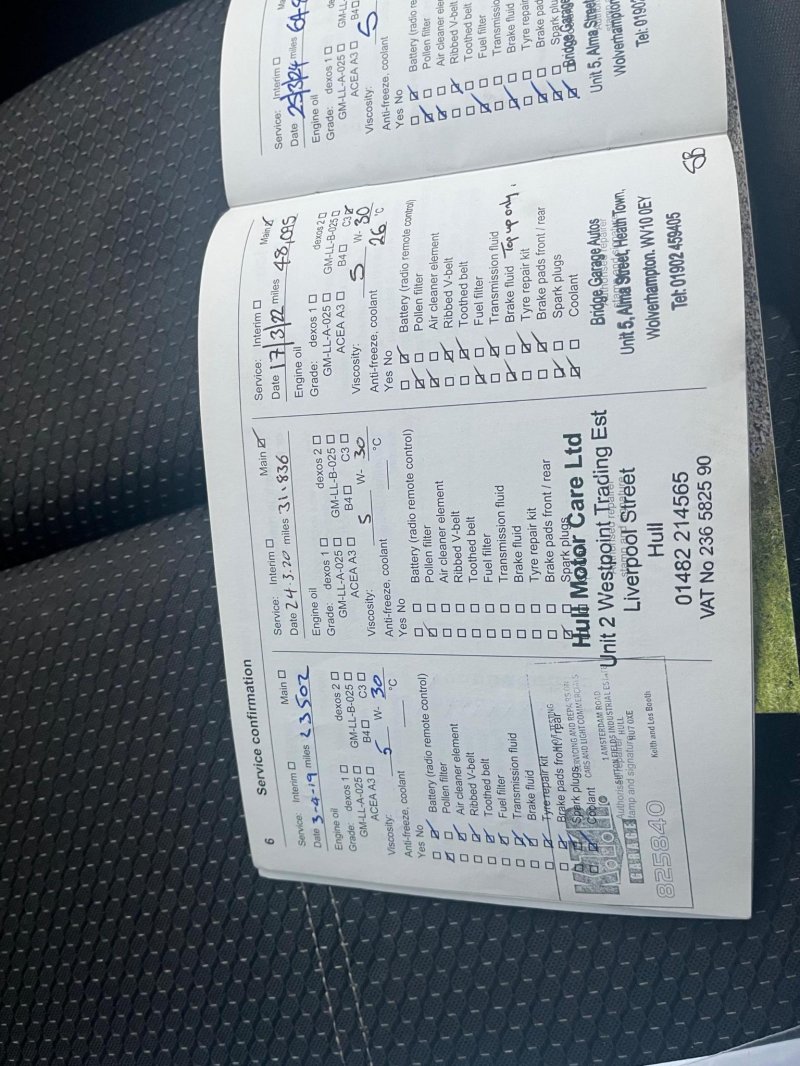 6
Service confirmation
Service: Interim ☐ Main ☐
Date 3-4-19 miles 23502
Engine oil
Grade: dexos 1 ☐ dexos 2 ☐
GM-LL-A-025 ☐ GM-LL-B-025 ☐
ACEA A3 ☐ B4 ☐ C3 ☐
Viscosity: 5 W- 30
Anti-freeze, coolant °C
Yes No
Battery (radio remote control)
Pollen filter
Air cleaner element
Ribbed V-belt
Toothed belt
Fuel filter
Transmission fluid
Brake fluid
Tyre repair kit
Brake pads front / rear
Spark plugs
Coolant
SERVICING AND REPAIRS ON
CARS AND LIGHT COMMERCIALS
1 AMSTERDAM ROAD
SUTTON FIELDS INDUSTRIAL ESTATE
HULL
HU7 0XE
Authorised repairer
stamp and signature
GARAGE
Keith and Les Booth
825840
Service: Interim ☐ Main ☑
Date 24.3.20 miles 31.836
Engine oil
Grade: dexos 1 ☐ dexos 2 ☐
GM-LL-A-025 ☐ GM-LL-B-025 ☐
ACEA A3 ☐ B4 ☐ C3 ☐
Viscosity: 5 W- 30
Anti-freeze, coolant °C
Yes No
Battery (radio remote control)
Pollen filter
Air cleaner element
Ribbed V-belt
Toothed belt
Fuel filter
Transmission fluid
Brake fluid
Tyre repair kit
Brake pads front / rear
Spark plugs
Hull Motor Care Ltd
Unit 2 Westpoint Trading Est
Liverpool Street
Hull
01482 214565
VAT No 236 5825 90
Service: Interim ☐ Main ☑
Date 17/3/22 miles 48,095
Engine oil
Grade: dexos 1 ☐ dexos 2 ☐
GM-LL-A-025 ☐ GM-LL-B-025 ☐
ACEA A3 ☐ B4 ☐ C3 ☑
Viscosity: 5 W- 30
Anti-freeze, coolant 26 °C
Yes No
Battery (radio remote control)
Pollen filter
Air cleaner element
Ribbed V-belt
Toothed belt
Fuel filter
Transmission fluid
Brake fluid Top up only.
Tyre repair kit
Brake pads front / rear
Spark plugs
Coolant
Bridge Garage Autos
Unit 5, Alma Street, Heath Town,
Wolverhampton. WV10 0EY
Tel: 01902 459405
SB
Service: Interim ☐
Date 25/3/24 miles
Engine oil
Grade: dexos 1 ☐
GM-LL-A-025 ☐
ACEA A3 ☐ B4 ☐
Viscosity: 5
Anti-freeze, coolant
Yes No
Battery (radio
Pollen filter
Air cleaner
Ribbed V-belt
Toothed belt
Fuel filter
Brake fluid
Tyre repair
Brake
Spark
Bridge Garage
Unit 5, Alma Street
Wolverhampton
Tel: 01902